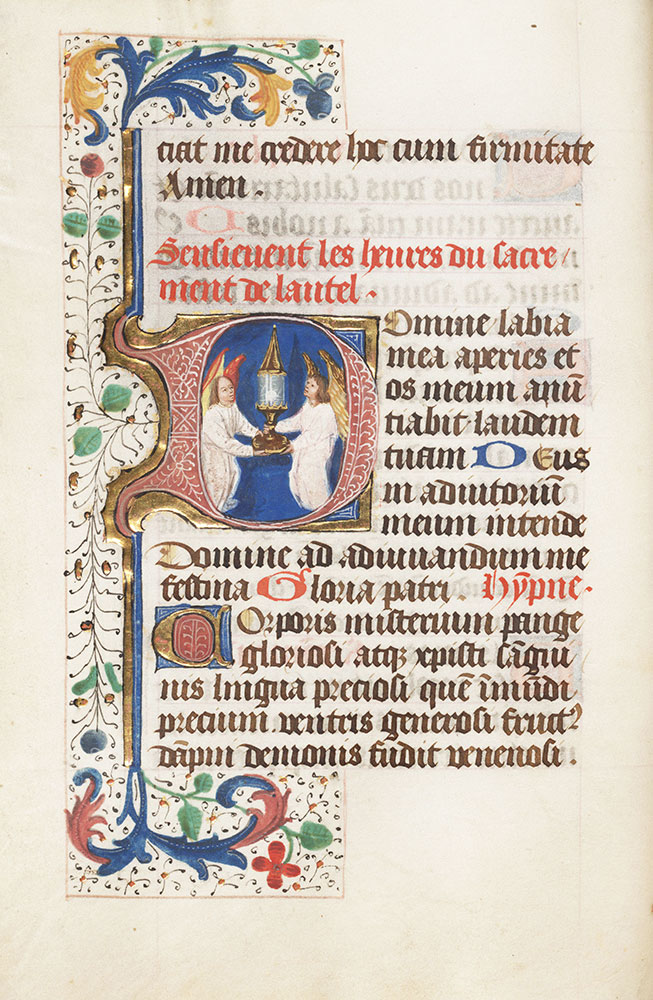 ciat me credere hoc cum firmitate
Amen .
Sensievent les heures du sacre
ment de lautel .
Domine labia
mea aperies et
os meum anun̄
tiabit laudem
tuam Deus
in adiutoriū
meum intende
Domine ad adiuvandum me
festina Gloria patri . Hỹpne .
Corporis misterium pange
gloriosi atqꝫ xpisti sāgui
nis lingua preciosi quē ī mūdi
precium . ventris generosi fruct᷒
dāpm demonis fudit venenosi .